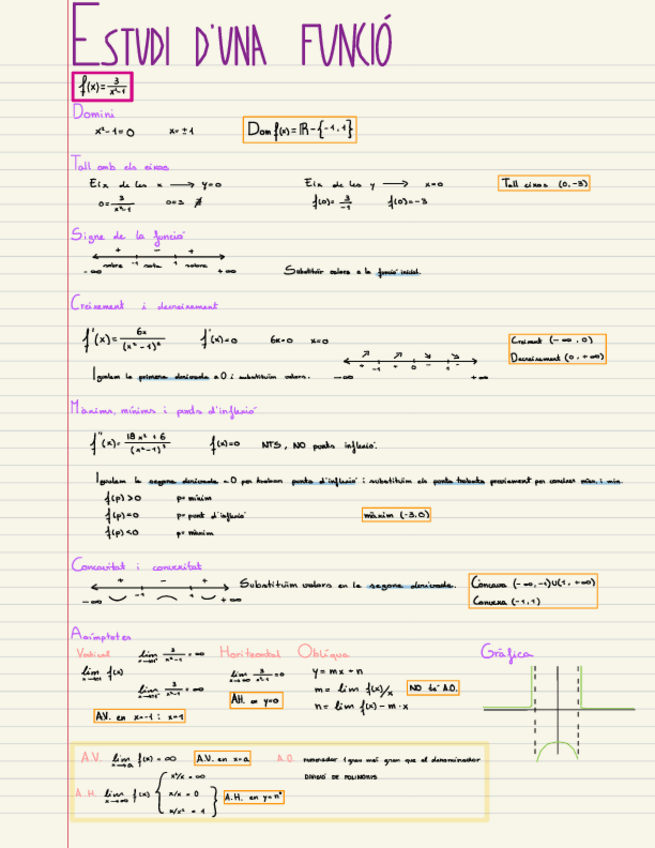 ESTUDI D'UNA FUNCIÓ
f(x)= 3/x²-1
Domini
x²-1=0 x=±1 Dom f(x)= R-{-1,1}
Tall amb els eixos
Eix de les x → y=0 Eix de les y → x=0 Tall eixos (0,-3)
0= 3/x²-1 0=3 ∄ f(0)= 3/-1 f(0)=-3
Signe de la funció
+ - +
-∞ -1 1 +∞ Substituir valors a la funció inicial.
Creixement i decreixement
f'(x)= 6x/(x²-1)² f'(x)=0 6x=0 x=0 Creixent (-∞,0)
Decreixement (0,+∞)
↗ ↗ ↘ ↘
+ -1 + 0 - 1 -
Igualem la primera derivada a 0 i substituïm valors. -∞ +∞
Màxims, mínims i punts d'inflexió
f''(x)= 18x²+6/(x²-1)³ f(x)=0 NTS, NO punts inflexió.
Igualem la segona derivada a 0 per trobar punts d'inflexió i substituïm els punts trobats previament per coneixer màx. i min.
f(p)>0 p= mínim
f(p)=0 p= punt d'inflexió màxim (-3,0)
f(p)<0 p= màxim
Concavitat i convexitat
+ - +
-∞ -1 1 +∞ Substituïm valors en la segona derivada. Còncava (-∞,-1)U(1,+∞)
Convexa (-1,1)
Asímptotes
Vertical lim 3/x²-1 = ∞ Horitzontal Oblíqua Gràfica
lim f(x) lim 3/x²-1 = 0 y= mx+n
lim 3/x²-1 = ∞ m= lim f(x)/x NO té A.O.
AH. en y=0 n= lim f(x)-m·x
A.V. en x=-1 i x=1
A.V. lim x→a f(x)=∞ A.V. en x=a A.O. numerador 1 grau més gran que el denominador
DIVISIÓ DE POLINOMIS
A.H. lim x→∞ f(x) { x²/x = ∞
x/x = 0
x/x² = 1 } A.H. en y=nº